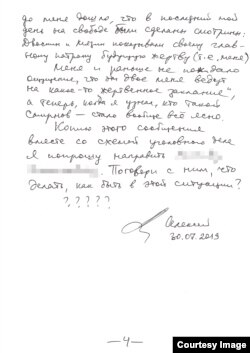 до меня дошло, что в последний мой
день на свободе были сделаны смотрины:
Двоскин и Мязин показывали своему глав-
ному патрону будущую жертву (т.е. меня)
Меня и раньше не покидало
ощущение, что они двое меня ведут
на какое-то „жертвенное заклание“,
а теперь, когда я узнал, кто такой
Смирнов – стало вообще всё ясно.
Копию этого сообщения
вместе со схемой уголовного дела
я попрошу направить
Поговори с ним, что
делать, как быть в этой ситуации?
?????
30.07.2019
—4—
Courtesy Image